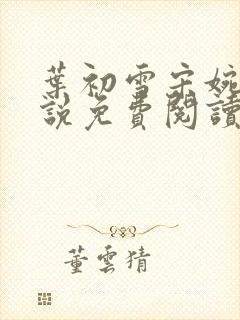 葉初雪宋婉
說免費閱讀
董雲猜